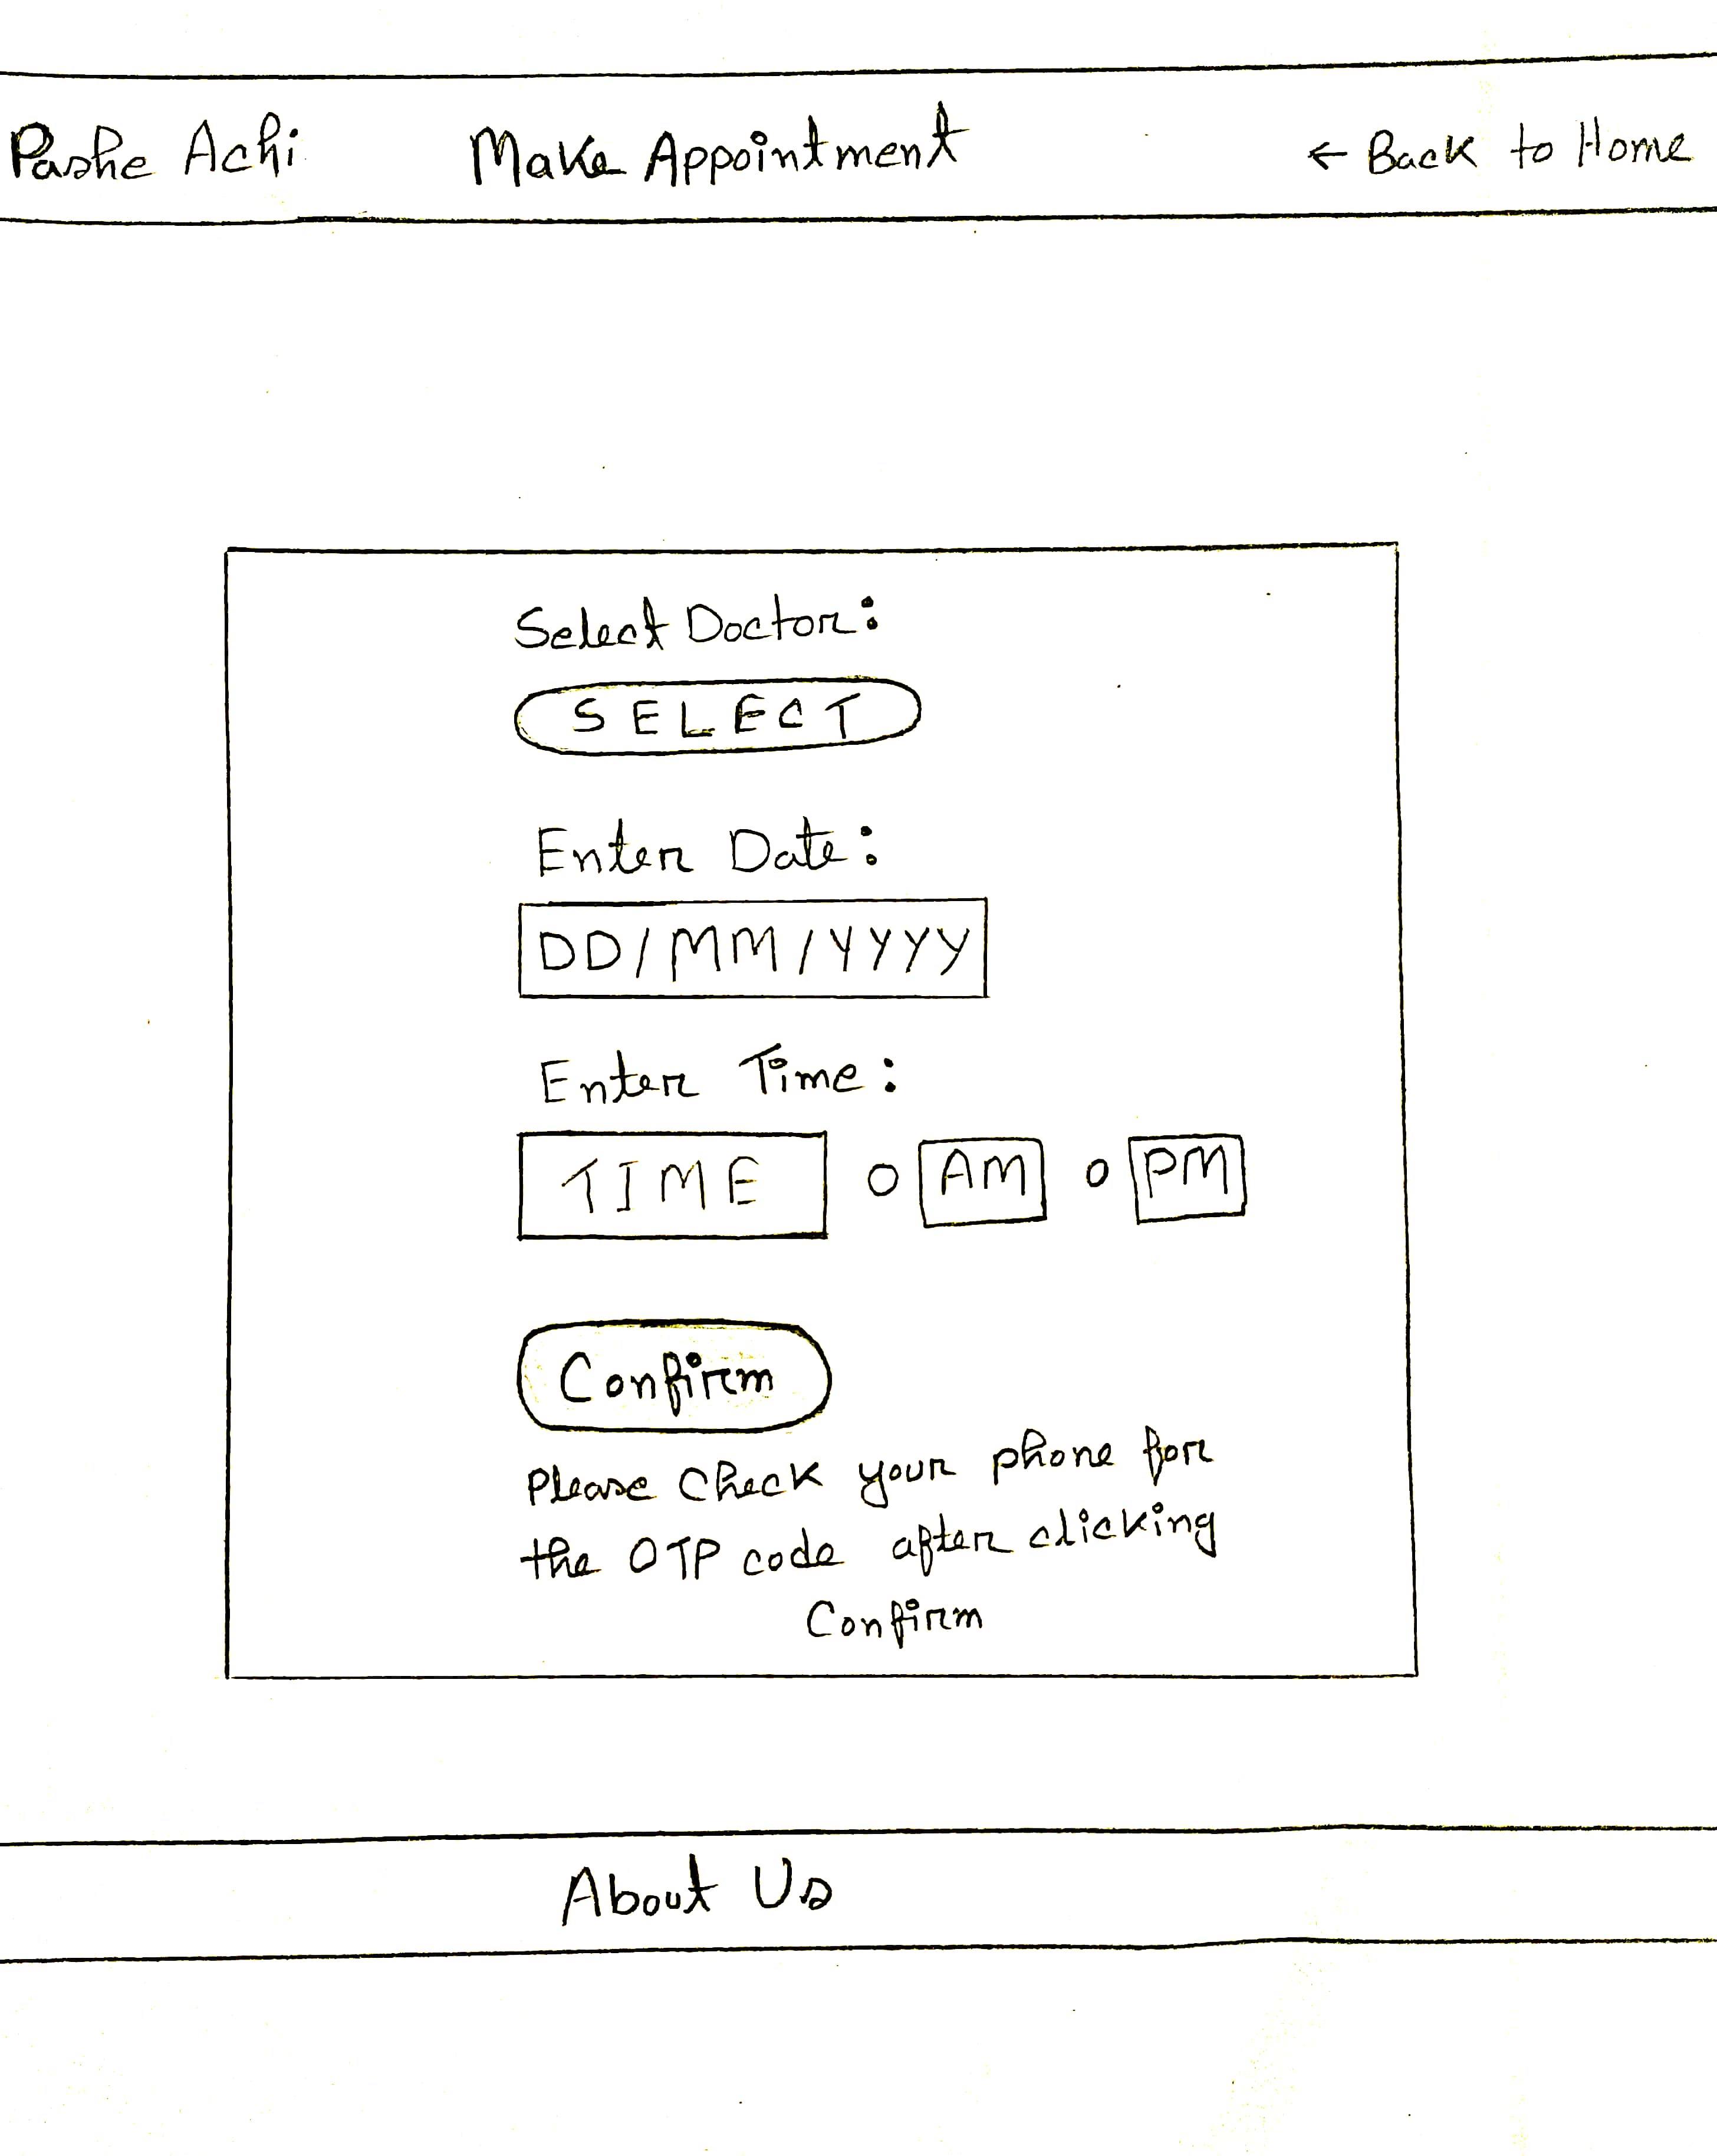 Pashe Achi Make Appointment ← Back to Home
Select Doctor:
SELECT
Enter Date:
DD/MM/YYYY
Enter Time:
TIME O AM O PM
Confirm
Please Check your phone for
the OTP code after clicking
Confirm
About Us